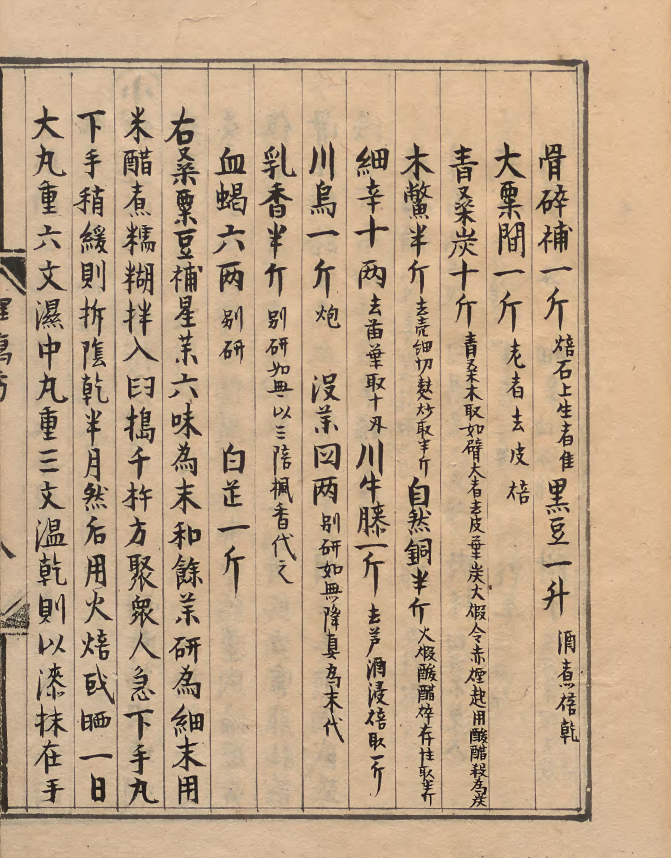 骨碎補一斤焙石上生者佳黑豆一升酒煮焙乾
大栗間一斤老者去皮焙
青桑炭十斤青桑木取如臂大者去皮葉炭大煅令赤煙起用酸醋殺為炭
木鱉半斤去壳细切麸炒取半斤自然銅半斤火煅酸醋碎存性取半斤
細辛十两去苗葉取十两川牛膝一斤去芦酒浸焙取一斤
川烏一斤炮没茱四两别研如無降真為末代
乳香半斤别研如無以三陪楓香代之
血蝎六两别研白芷一斤
右桑栗豆補星茱六味為末和餘茱研為細末用
米醋煮糯糊拌入臼搗千杵方聚衆人急下手丸
下手稍緩則拆陰乾半月然后用火焙或晒一日
大丸重六文濕中丸重三文温乾則以漆抹在手